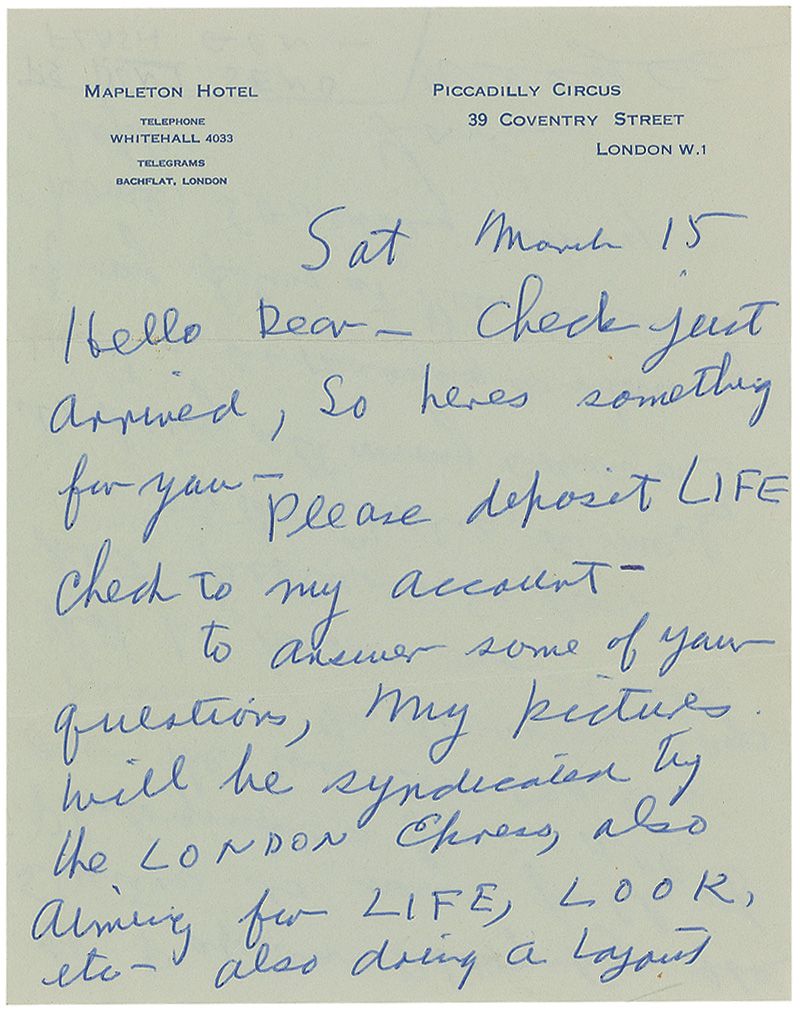 MAPLETON HOTEL
TELEPHONE
WHITEHALL 4033
TELEGRAMS
BACHFLAT, LONDON
PICCADILLY CIRCUS
39 COVENTRY STREET
LONDON W.1
Sat March 15
Hello Dear — Check just
arrived, So heres something
for you —
Please deposit LIFE
check to my account —
to answer some of your
questions, My pictures
will be syndicated by
the LONDON Express, also
Aiming for LIFE, LOOK,
etc — also doing a layout